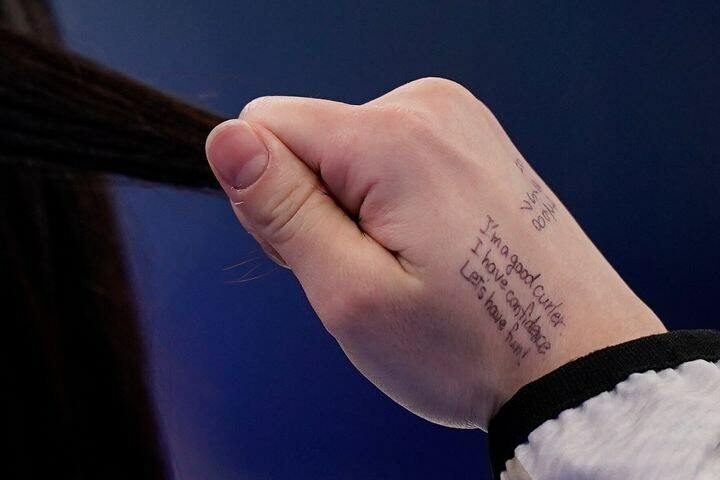 I'm a good curler
I have confidence
Let's have fun!